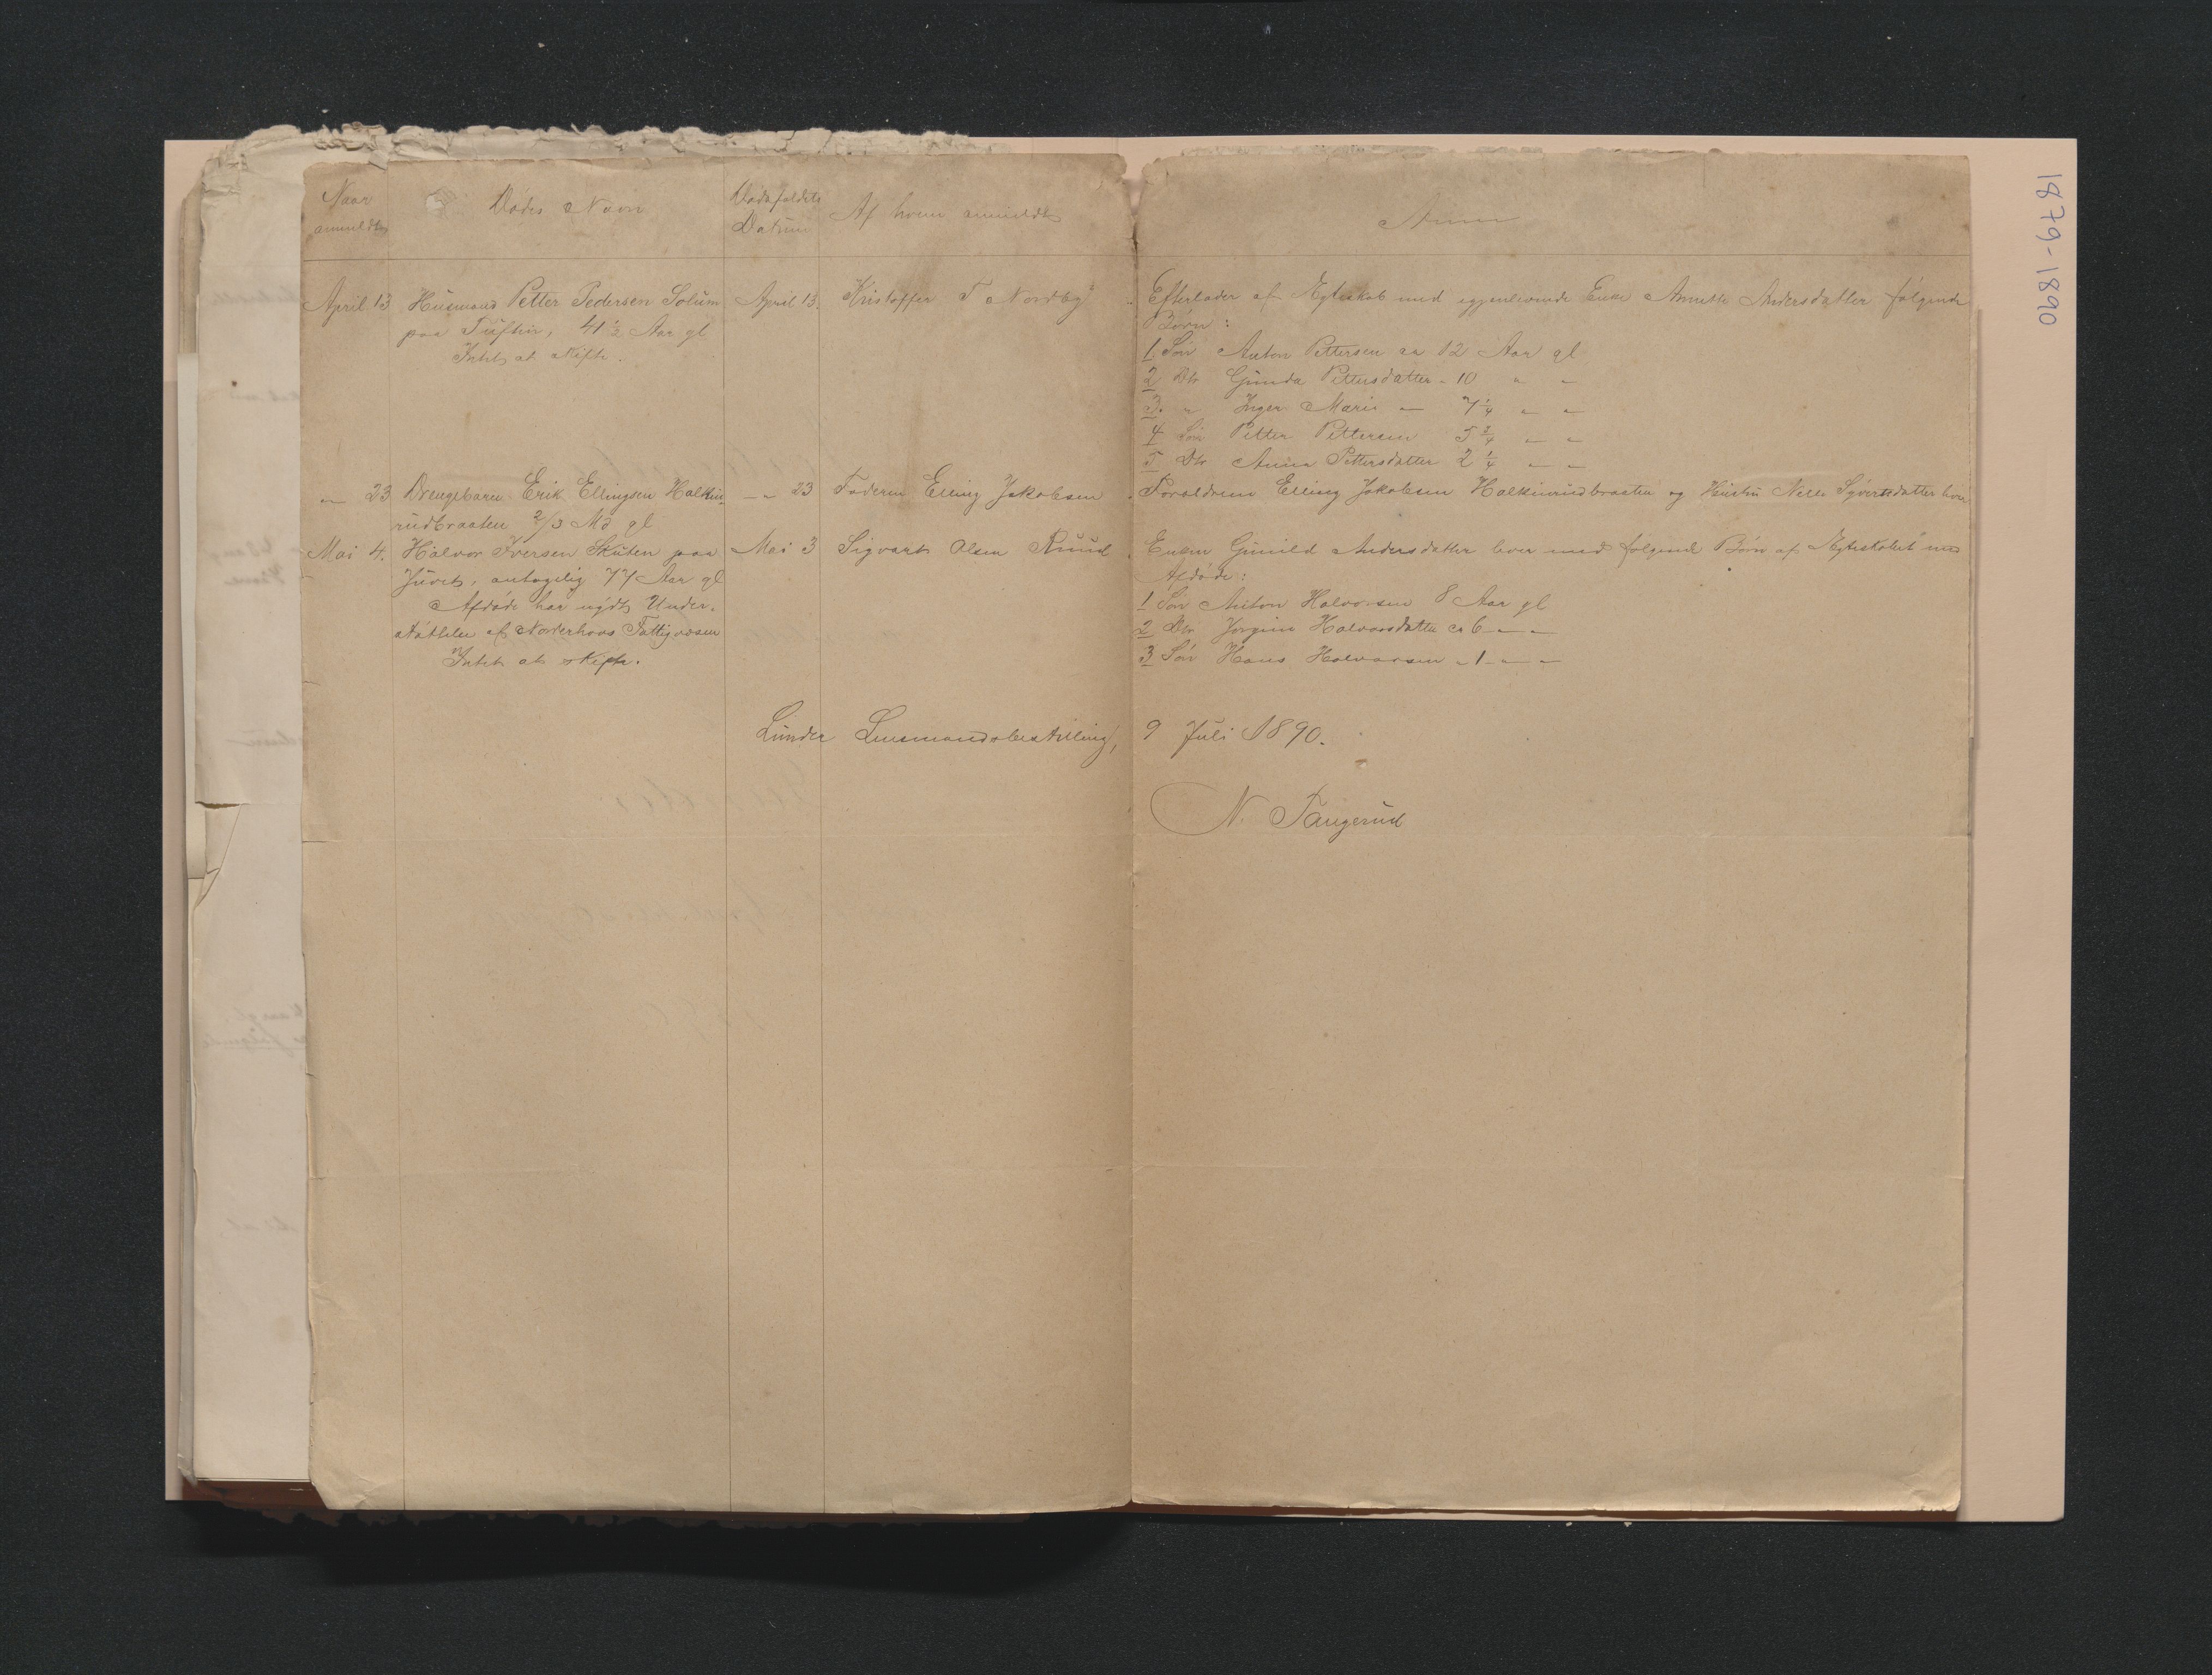 Naar anmeldt
Dødes Navn
Dødsfaldets Datum
Af hvem anmeldt
Anm
April 13
Husmand Petter Pedersen Solum
paa Tuften, 41 1/2 Aar gl
Intet at skifte.
April 13.
Kristoffer T Nordby
Efterlader af Egteskab med igjenlevende Enke Annette Andersdatter følgende
Børn:
1. Søn Anton Pettersen ca 12 Aar gl
2 Dtr Gunda Pettersdatter " 10 " "
3. " Inger Marie — 7 1/4 " "
4 Søn Petter Pettersen 5 3/4 " "
5 Dtr Anna Pettersdatter 2 1/4 " "
" 23
Drengebarn Erik Ellingsen Halkin-
rudbraaten 2/3 Md gl
" 23
Faderen Elling Jakobsen
Forældrene Elling Jakobsen Halkinrudbraaten og Hustru Syvertsdatter lever
Mai 4.
Halvor Iversen Skuten paa
Juvet, antagelig 77 Aar gl
Afdøde har nydt Under-
støttelse af Norderhovs Fattigvæsen
Intet at skifte.
Mai 3
Sigvart Olsen Ruud
Enken Gunild Andersdatter lever med følgende Børn af Egteskabet med
Afdøde:
1 Søn Anton Halvorsen 8 Aar gl
2 Dtr Jørgine Halvorsdatter ca 6 " "
3 Søn Hans Halvorsen " 1 " "
Lunder Lensmandsbestilling, 9 Juli 1890.
N. Tangerud
1879-1890